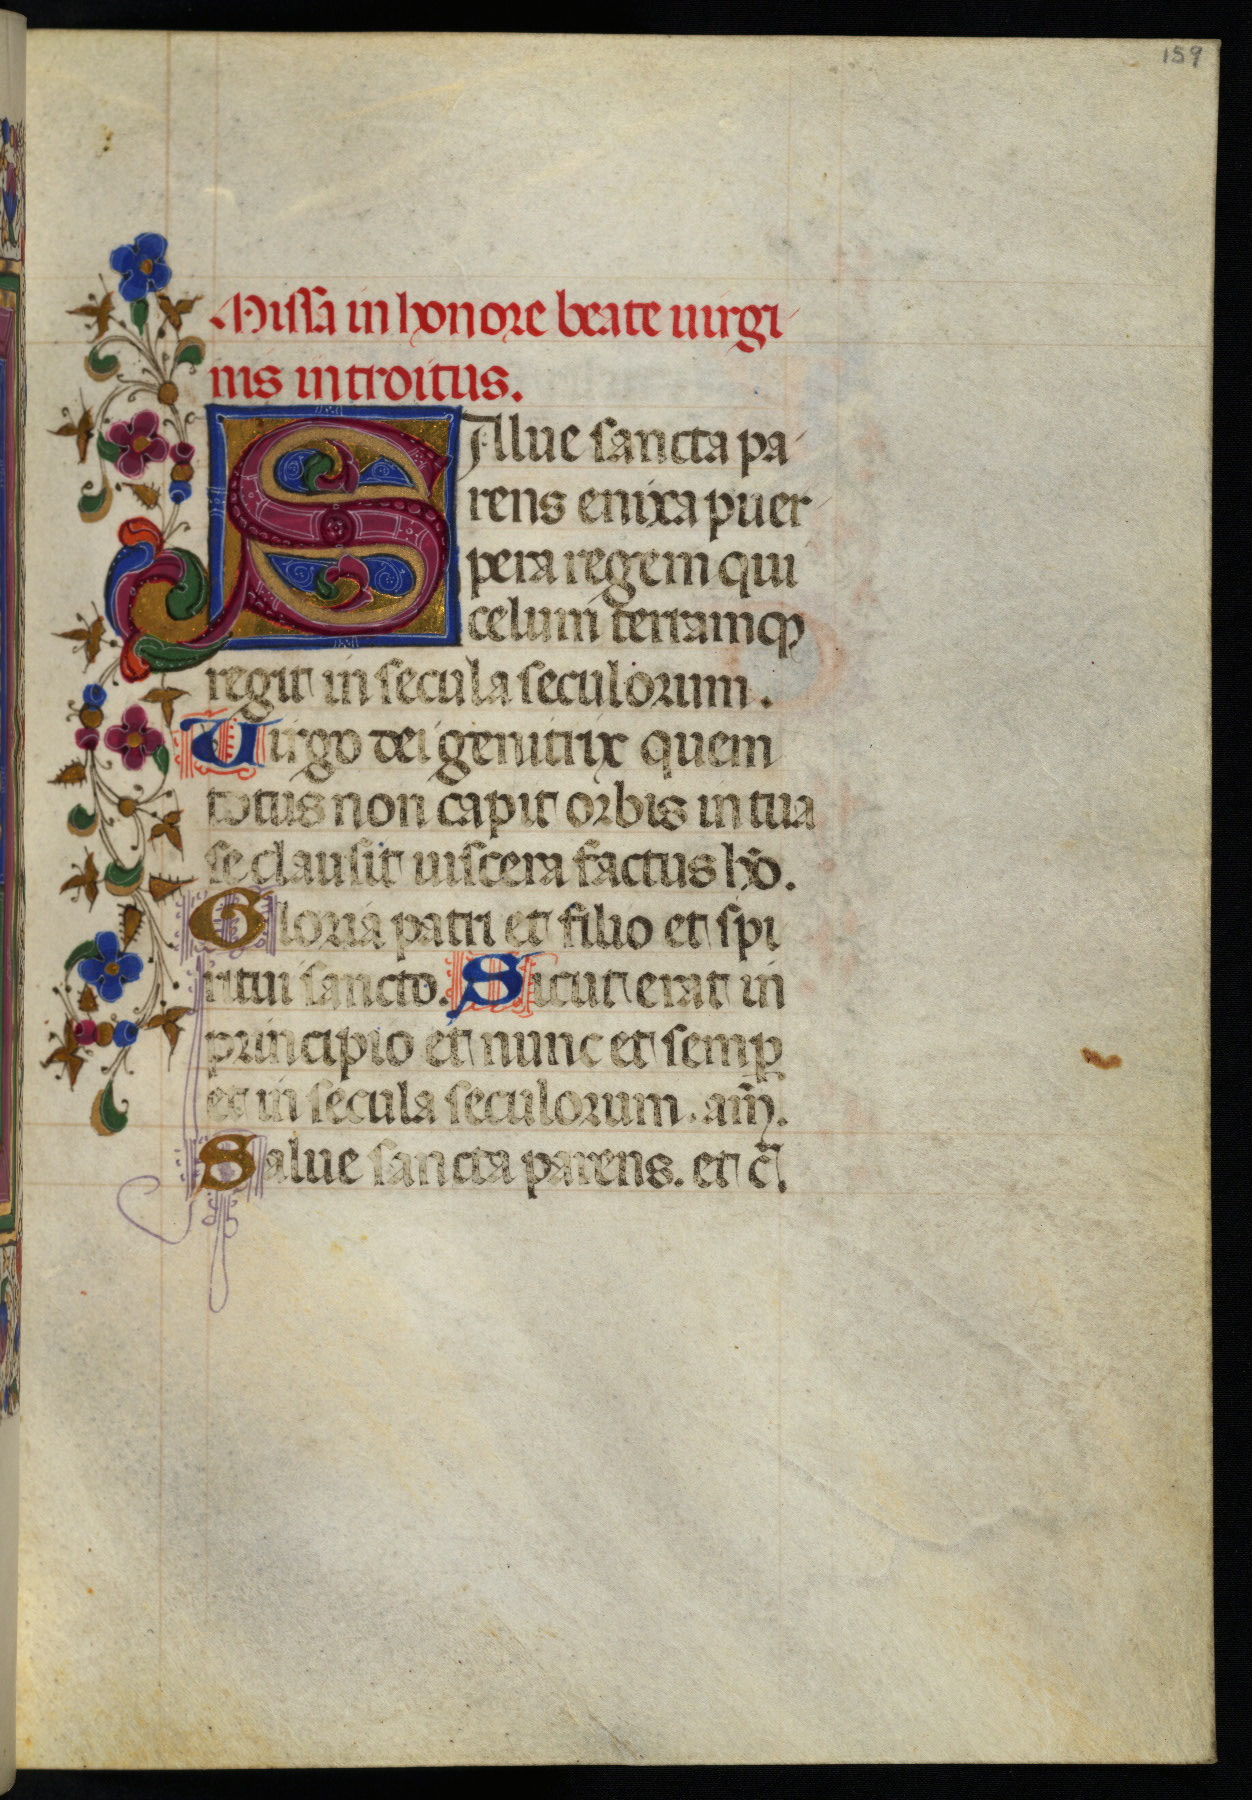 159
Missa in honore beate uirgi
nis introitus.
SAlue sancta pa
rens enixa puer
pera regem qui
celum terramqꝫ
regit in secula seculorum.
Uirgo dei genitrix quem
totus non capit orbis in tua
se clausit uiscera factus hō.
Gloria patri et filio et spi
ritui sancto. Sicut erat in
principio et nunc et semꝑ
et in secula seculorum. am̄.
Salue sancta parens. et c̄.